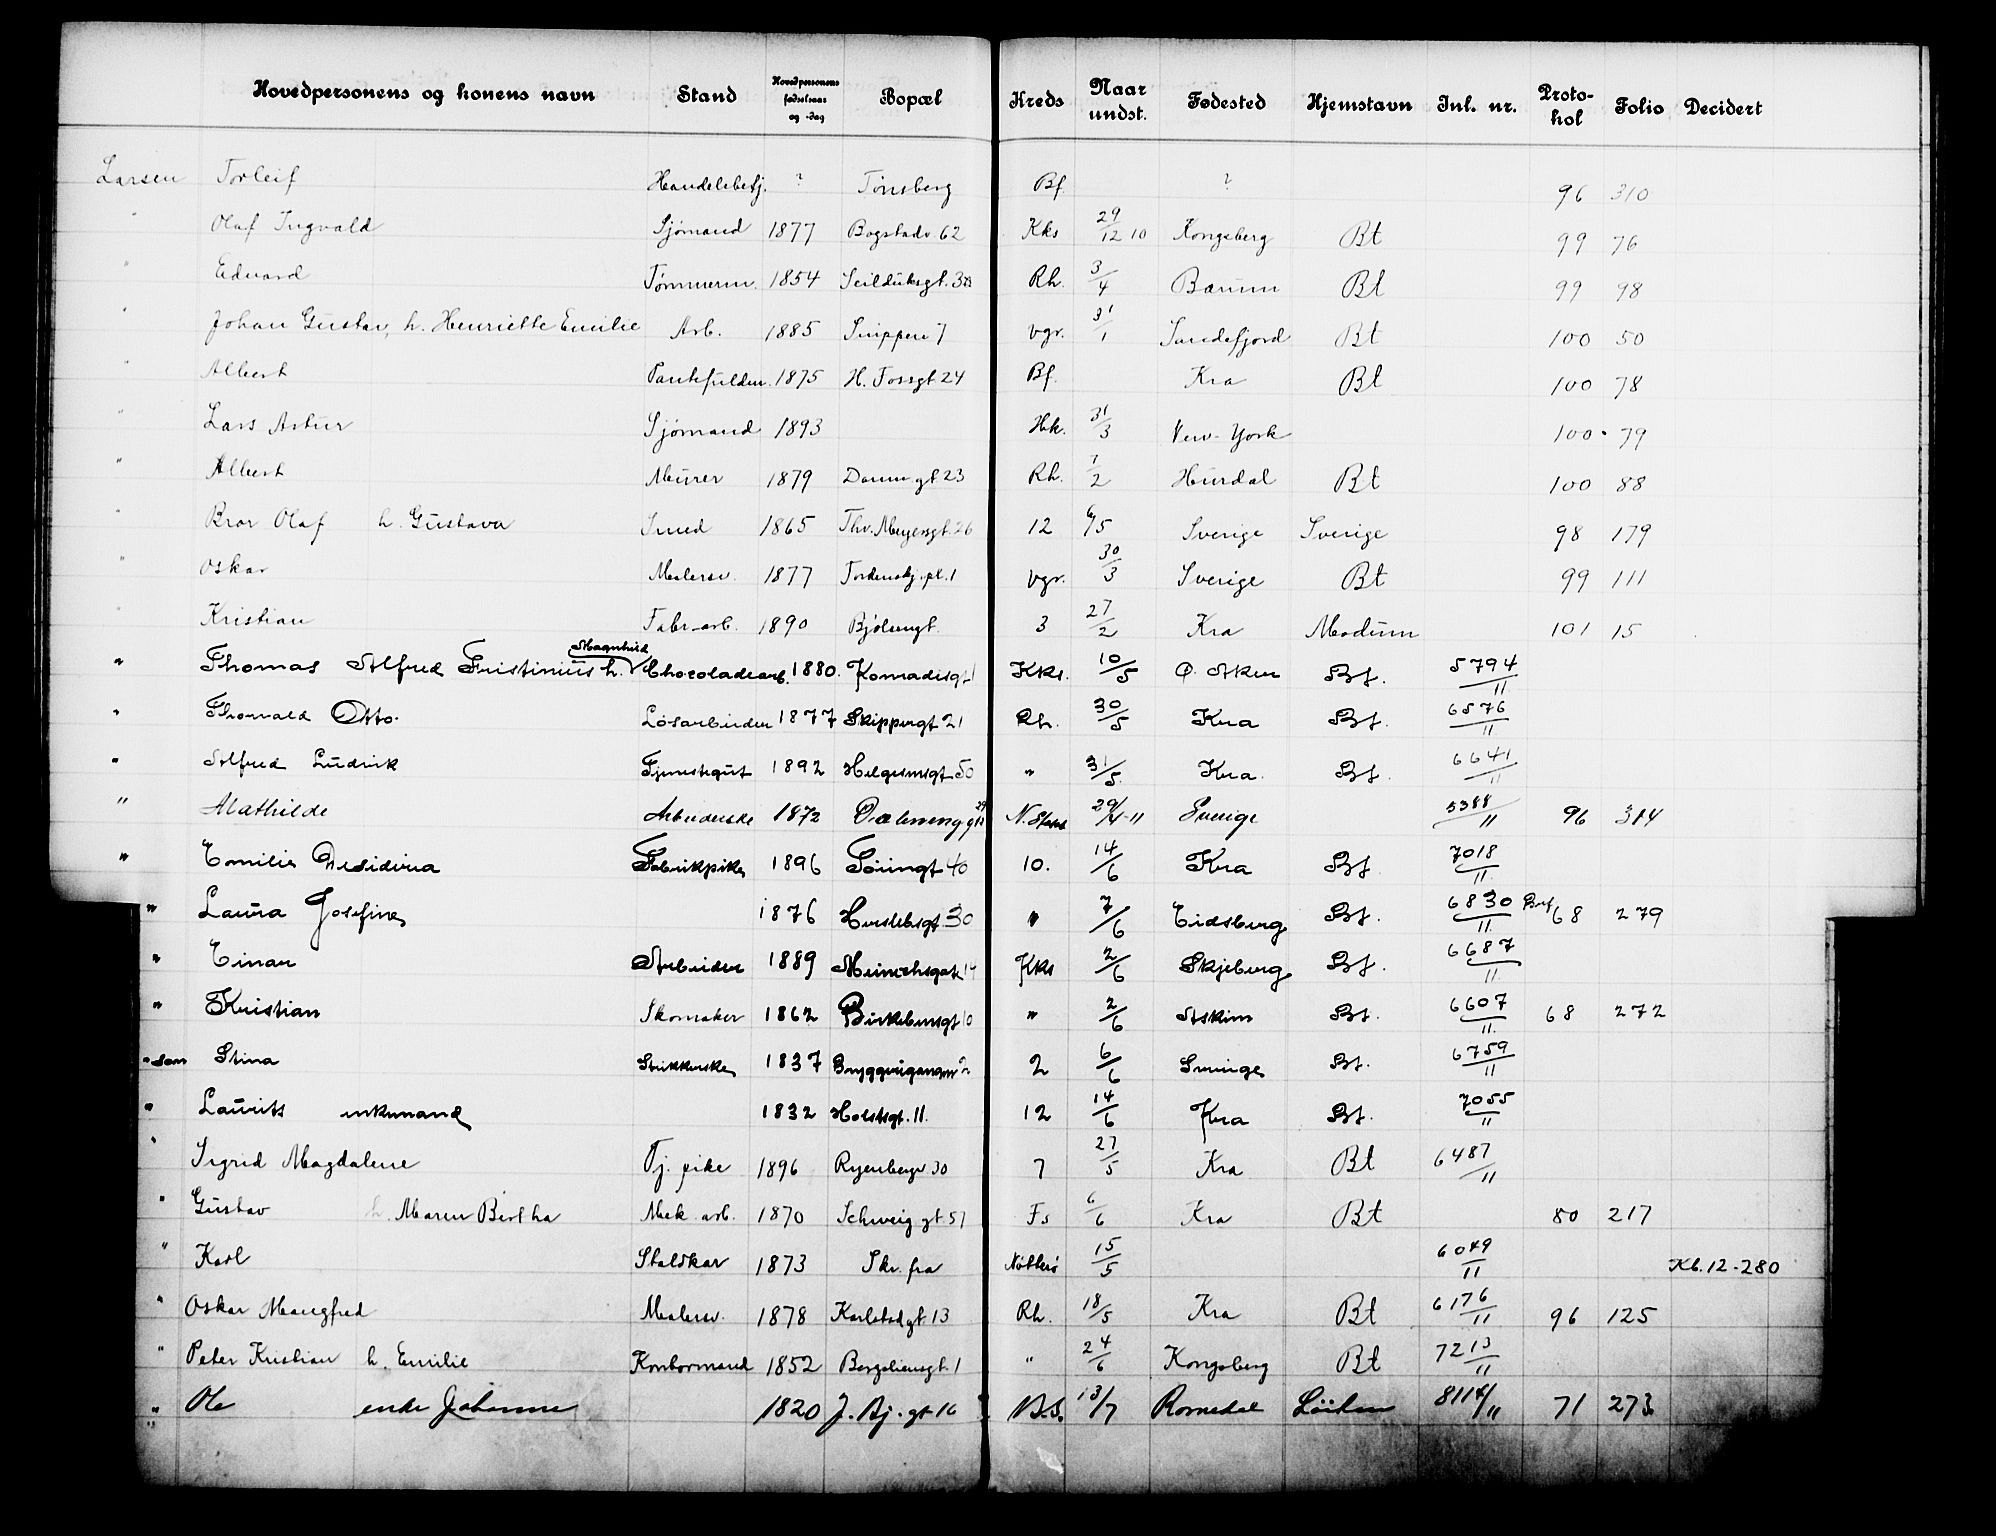 Hovedpersonens og konens navn Stand Hovedpersonens fødselsaar og -dag Bopæl Kreds Naar undst. Fødested Hjemstavn Inl. nr. Protokol Folio Decidert
Larsen Torleif Handelsbetj. ? Tønsberg Bf. ? 96 310
" Olaf Ingvald Sjømand 1877 Bogstadv. 62 Kks 29/12 10 Kongsberg Bt 99 76
" Edvard Tømmerm. 1854 Seilduksgt. Rh. 3/4 Bærum Bt 99 98
" Johan Gustav, h. Henriette Emilie Arb. 1885 Snippen 7 Vgr. 31/1 Sandefjord Bt 100 50
" Albert 1875 H. Fossgt 24 Bf. Kra Bt 100 78
" Lars Artur Sjømand 1893 Hk. 31/3 New-York 100 79
" Albert Murer 1879 gt 23 Rh. 1/2 Hurdal Bt 100 88
" Bror Olaf h. Gustava Smed 1865 Thv. Meyersgt. 26 12 6/5 Sverige Sverige 98 179
" Oskar Malersv. 1877 Tordenskj. pl. 1 Vgr. 30/3 Sverige Bt 99 111
" Kristian Fabr-arb. 1890 Bjølsengt. 3 27/2 Kra Modum 101 15
" Thomas Alfred Fristinius h. Magnhild Chocoladearb. 1880. Komadisgt 1 Kks. 10/5 Ø. Aker Bt. 5794/11
" Thorvald Otto. Løsarbeider 1877 Skippergt 21 Rh. 30/5 Kra Bt. 6576/11
" Alfred Ludvik Tjenestegut 1892 Helgesensgt 50 " 31/5. Kra. Bt. 6641/11
" Mathilde Arbeiderske 1872 29 N. 29/4-11 Sverige 5388/11 96 314
" Emilie Desideria Fabrikpike 1896 40 10. 14/6 Kra Bt. 7018/11
" Laura Josefine 1876 Herslebsgt 30 " 7/6 Eidsberg Bt. 6830/11 68 279
" Einar Arbeider 1889 Kks 2/6 Skjeberg Bt. 6687/11.
" Kristian Skomaker 1862 Birkebensgt 10 " 2/6 Askim Bt. 6607/11. 68 272
" sen Stina Strikkerske 1837 Bryggerigangen 2 2 6/6 Sverige Bt. 6759/11
" Laurits enkemand 1832 Holstsgt. 11. 12 14/6 Kra Bt. 7055/11
" Sigrid Magdalene Tj. pike 1896 Ryenbergv. 30 7 27/5 Kra Bt 6487/11
" Gustav h. Maren Bertha Mek. arb. 1870 Schweig. gt. 51 Fs 6/6 Kra Bt 80 217
" Karl Staldkar 1873 Skr. fra Nøtterø 15/5 6049/11 Kb. 12-280
" Oskar Mangfred Malersv. 1878 Karlstadgt. 13 Rh. 18/5 Kra Bt 6176/11 96 125
" Peter Kristian h. Emilie Kontormand 1852 Bergsliensgt. 1 " 24/6 Kongsberg Bt 7213/11
" Ole enke Johanne 1820 J. Bj. gt 16 B.S. 13/7 Romedal Løiten 8114/11 71 273